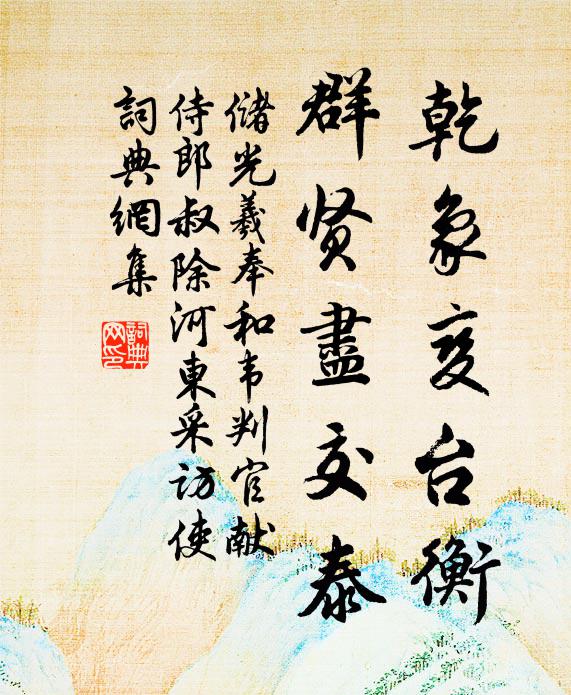 乾象变台衡
群贤盡交泰
儲光羲奉和韦判官献
侍郎叔除河東采访使
詞典網集
詞典网印